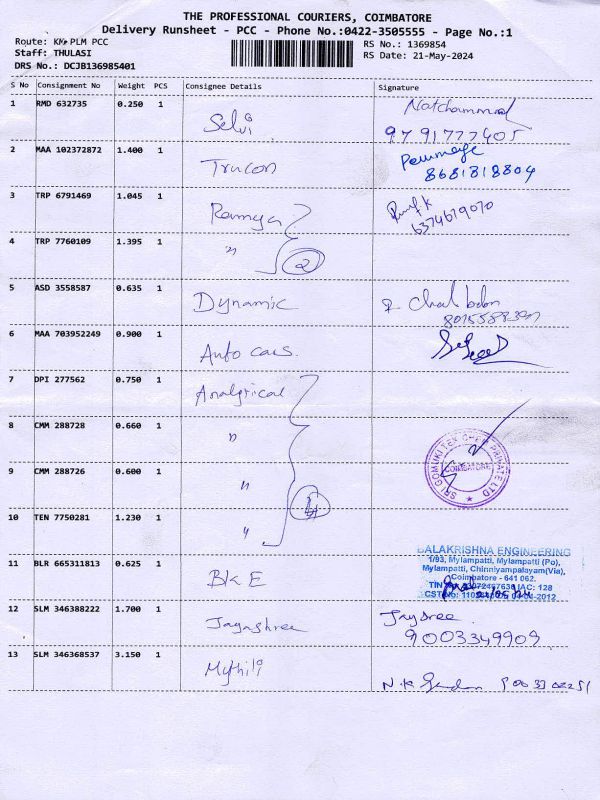 THE PROFESSIONAL COURIERS, COIMBATORE
Delivery Runsheet - PCC - Phone No.:0422-3505555 - Page No.:1
Route: PLM PCC
RS No.: 1369854
Staff: THULASI
RS Date: 21-May-2024
DRS No.: DCJB136985401
S No Consignment No Weight PCS Consignee Details Signature
1 RMD 632735 0.250 1 Selvi
9791777405
2 MAA 102372872 1.400 1 Trucon
8681818804
3 TRP 6791469 1.045 1 Ramya
6374679070
4 TRP 7760109 1.395 1 " 2
5 ASD 3558587 0.635 1 Dynamic
6 MAA 703952249 0.900 1 Auto cars.
7 DPI 277562 0.750 1 Analytical
8 CMM 288728 0.660 1 "
9 CMM 288726 0.600 1 " 4
SRI GOMUKI TEK CHEM PRIVATE LTD
COIMBATORE
10 TEN 7750281 1.230 1 "
11 BLR 665311813 0.625 1 BKE
BALAKRISHNA ENGINEERING
1/93, Mylampatti, Mylampatti (Po),
Mylampatti, Chinniyampalayam(Via),
Coimbatore - 641 062.
12 SLM 346388222 1.700 1 Jayashree Jaysree
9003349909
13 SLM 346368537 3.150 1 Mythili
N.K